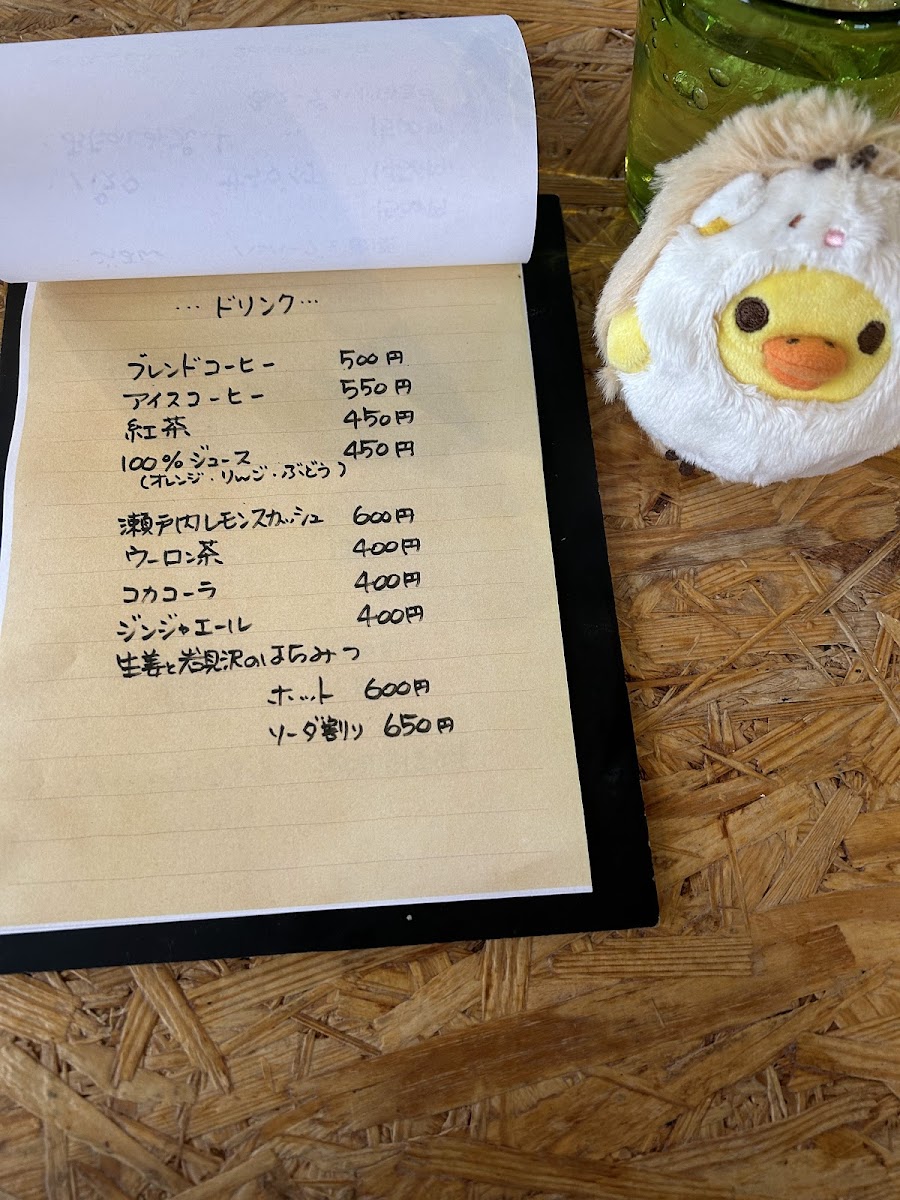 … ドリンク …
ブレンドコーヒー 500円
アイスコーヒー 550円
紅茶 450円
100%ジュース 450円
(オレンジ・りんご・ぶどう)
瀬戸内レモンスカッシュ 600円
ウーロン茶 400円
コカコーラ 400円
ジンジャエール 400円
生姜と岩見沢のはちみつ
ホット 600円
ソーダ割り 650円